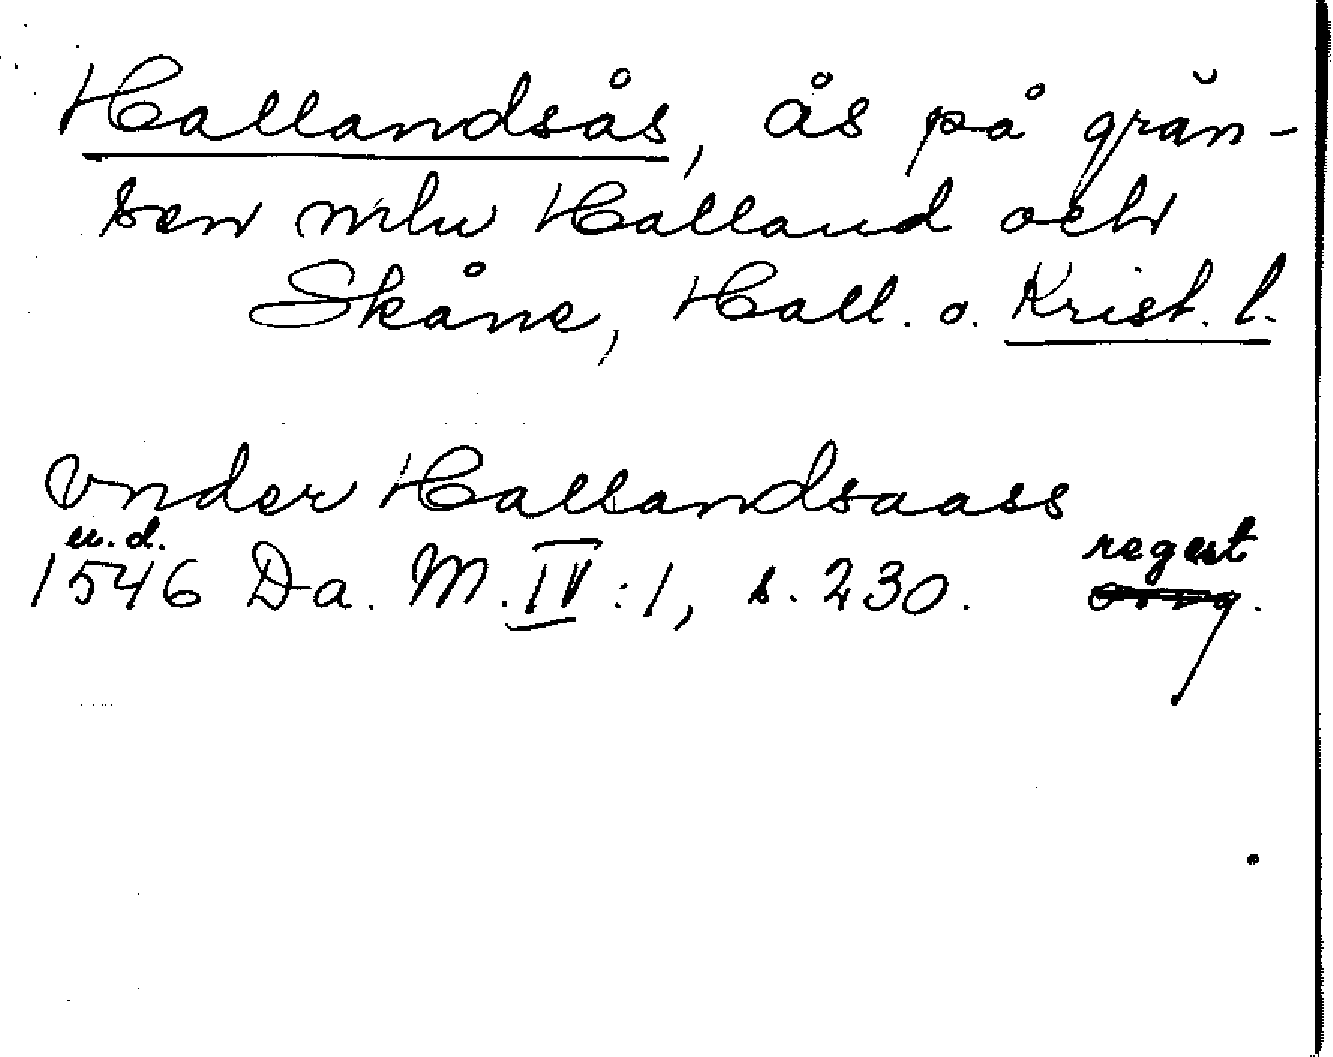 Hallandsås, ås på grän-
sen mln Halland och
Skåne, Hall. o. Krist. l.
vnder Hallandsaass
u. d.
1546 Da. M. IV:1, s. 230. regest